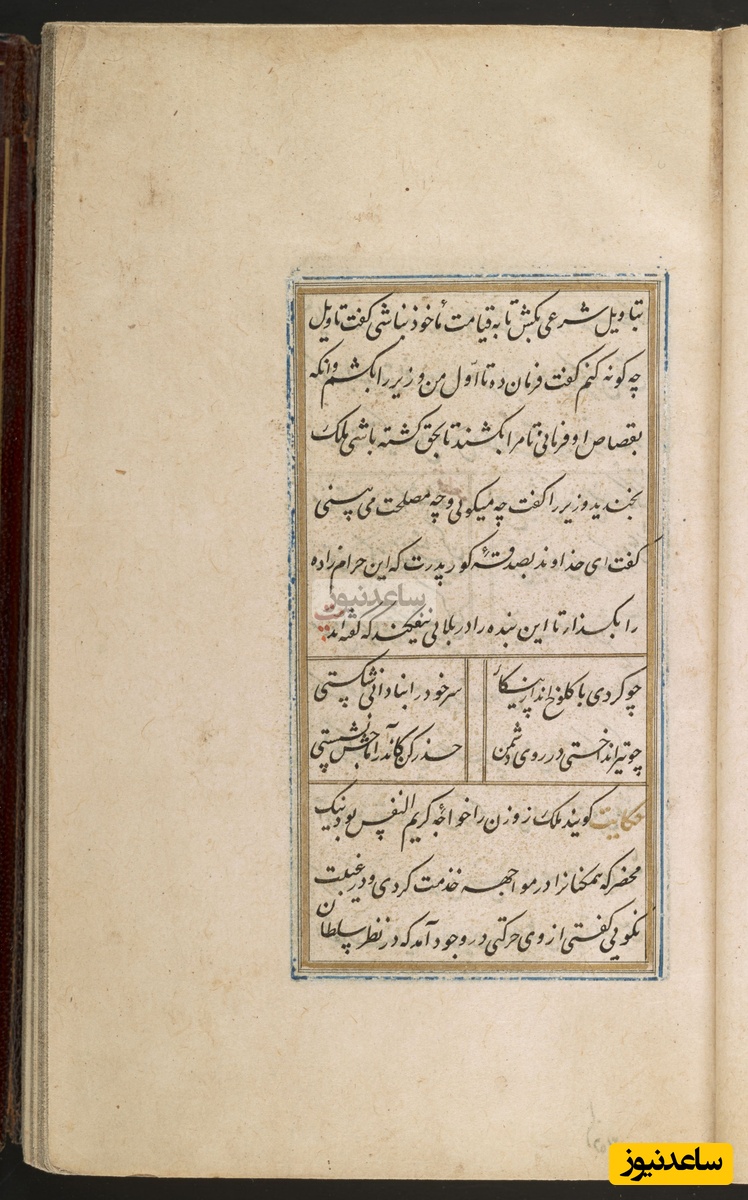 بتاویل شرعی بکش تا به قیامت مأخوذ نباشی گفت تاویل
چه کونه کنم گفت فرمان ده تا اول من وزیر را بکشم وانکه
بقصاص او فرمائی تا مرا بکشند تا بحق کشته باشی ملک
بخندید وزیر را گفت چه میکوئی وچه مصلحت می بینی
گفت ای خداوند بصدقهٔ کور پدرت که این حرام زاده
را بکذار تا این بنده را در بلائی نیفکند که گفته اند بیت
چو کردی با کلوخ انداز پیکار سر خود را بنادانی شکستی
چو تیر انداختی در روی دشمن حذر کن کاندر آماجش نشستی
حکایت کویند ملک زوزن را خواجهٔ کریم النفس بود نیک
محضر که همکنانرا در مواجهه خدمت کردی و در غیبت
نکویی گفتی از وی حرکتی در وجود آمد که در نظر سلطان
ساعدنیوز
ساعدنیوز